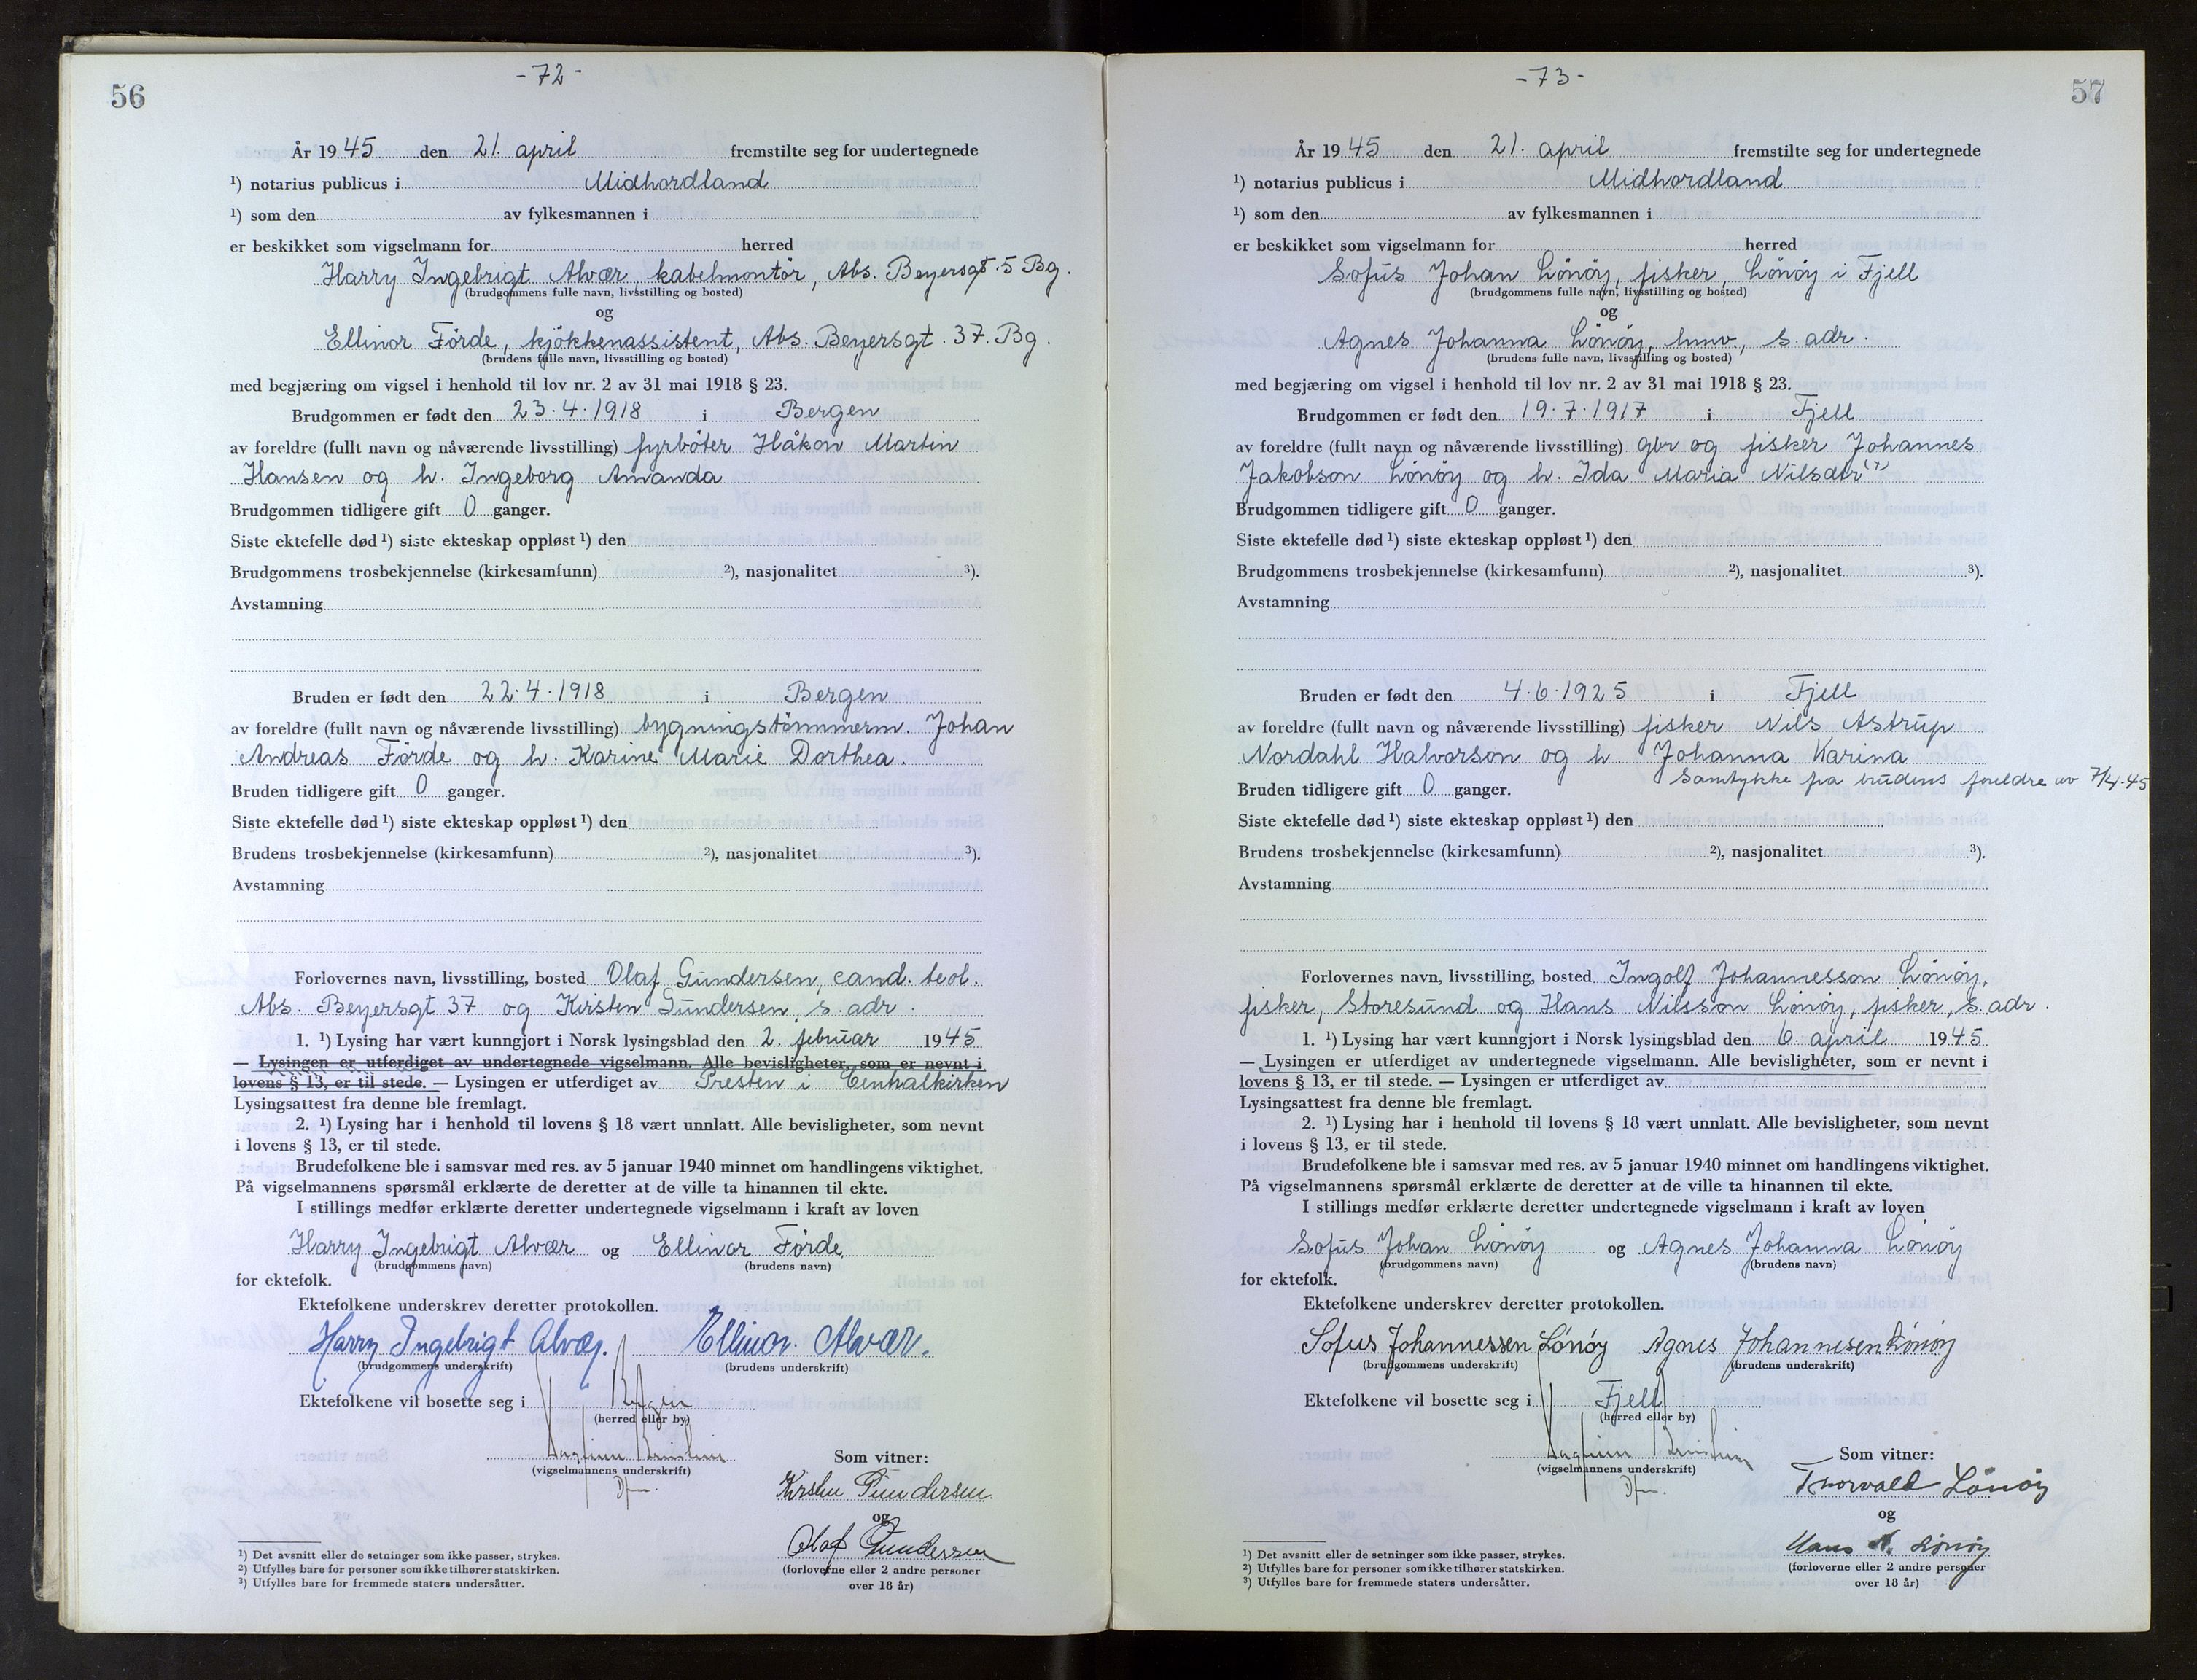 56
-72-
År 1945 den 21. april fremstilte seg for undertegnede
¹) notarius publicus i Midhordland
¹) som den av fylkesmannen i
er beskikket som vigselmann for herred
Harry Ingebrigt Alvær, kabelmontör, Abs. Beyersgt. 5 Bg.
(brudgommens fulle navn, livsstilling og bosted)
og
Ellinor Förde, kjökkenassistent, Abs. Beyersgt. 37. Bg.
(brudens fulle navn, livsstilling og bosted)
med begjæring om vigsel i henhold til lov nr. 2 av 31 mai 1918 § 23.
Brudgommen er født den 23.4.1918 i Bergen
av foreldre (fullt navn og nåværende livsstilling) fyrböter Håkon Martin
Hansen og h. Ingeborg Amanda
Brudgommen tidligere gift 0 ganger.
Siste ektefelle død ¹) siste ekteskap oppløst ¹) den
Brudgommens trosbekjennelse (kirkesamfunn) ²), nasjonalitet ³).
Avstamning
Bruden er født den 22.4.1918 i Bergen
av foreldre (fullt navn og nåværende livsstilling) bygningstömmerm. Johan
Andreas Förde og h. Karine Marie Dorthea.
Bruden tidligere gift 0 ganger.
Siste ektefelle død ¹) siste ekteskap oppløst ¹) den
Brudens trosbekjennelse (kirkesamfunn) ²), nasjonalitet ³).
Avstamning
Forlovernes navn, livsstilling, bosted Olaf Gundersen, cand. teol.
Abs. Beyersgt 37 og Kirsten Gundersen, s. adr.
1. ¹) Lysing har vært kunngjort i Norsk lysingsblad den 2. februar 1945
— Lysingen er utferdiget av undertegnede vigselmann. Alle bevisligheter, som er nevnt i
lovens § 13, er til stede. — Lysingen er utferdiget av Presten i Centralkirken
Lysingsattest fra denne ble fremlagt.
2. ¹) Lysing har i henhold til lovens § 18 vært unnlatt. Alle bevisligheter, som nevnt
i lovens § 13, er til stede.
Brudefolkene ble i samsvar med res. av 5 januar 1940 minnet om handlingens viktighet.
På vigselmannens spørsmål erklærte de deretter at de ville ta hinannen til ekte.
I stillings medfør erklærte deretter undertegnede vigselmann i kraft av loven
Harry Ingebrigt Alvær og Ellinor Förde
(brudgommens navn) (brudens navn)
for ektefolk.
Ektefolkene underskrev deretter protokollen.
Harry Ingebrigt Alvær. Ellinor Alvær.
(brudgommens underskrift) (brudens underskrift)
Ektefolkene vil bosette seg i Bergen
(herred eller by)
(vigselmannens underskrift)
Som vitner:
Kirsten Gundersen.
og
Olaf Gundersen
(forloverne eller 2 andre personer
over 18 år)
¹) Det avsnitt eller de setninger som ikke passer, strykes.
²) Utfylles bare for personer som ikke tilhører statskirken.
³) Utfylles bare for fremmede staters undersåtter.
57
-73-
År 1945 den 21. april fremstilte seg for undertegnede
¹) notarius publicus i Midhordland
¹) som den av fylkesmannen i
er beskikket som vigselmann for herred
Sofus Johan Lönöy, fisker, Lönöy i Fjell
(brudgommens fulle navn, livsstilling og bosted)
og
Agnes Johanna Lönöy, hmv., s. adr.
(brudens fulle navn, livsstilling og bosted)
med begjæring om vigsel i henhold til lov nr. 2 av 31 mai 1918 § 23.
Brudgommen er født den 19.7.1917 i Fjell
av foreldre (fullt navn og nåværende livsstilling) gbr og fisker Johannes
Jakobson Lönöy og h. Ida Maria Nilsdtr
Brudgommen tidligere gift 0 ganger.
Siste ektefelle død ¹) siste ekteskap oppløst ¹) den
Brudgommens trosbekjennelse (kirkesamfunn) ²), nasjonalitet ³).
Avstamning
Bruden er født den 4.6.1925 i Fjell
av foreldre (fullt navn og nåværende livsstilling) fisker Nils Astrup
Nordahl Halvorson og h. Johanna Karina
Samtykke fra brudens foreldre av 7/4.45
Bruden tidligere gift 0 ganger.
Siste ektefelle død ¹) siste ekteskap oppløst ¹) den
Brudens trosbekjennelse (kirkesamfunn) ²), nasjonalitet ³).
Avstamning
Forlovernes navn, livsstilling, bosted Ingolf Johannesson Lönöy,
fisker, Storesund og Hans Nilsson Lönöy, fisker, s. adr.
1. ¹) Lysing har vært kunngjort i Norsk lysingsblad den 6. april 1945
— Lysingen er utferdiget av undertegnede vigselmann. Alle bevisligheter, som er nevnt i
lovens § 13, er til stede. — Lysingen er utferdiget av
Lysingsattest fra denne ble fremlagt.
2. ¹) Lysing har i henhold til lovens § 18 vært unnlatt. Alle bevisligheter, som nevnt
i lovens § 13, er til stede.
Brudefolkene ble i samsvar med res. av 5 januar 1940 minnet om handlingens viktighet.
På vigselmannens spørsmål erklærte de deretter at de ville ta hinannen til ekte.
I stillings medfør erklærte deretter undertegnede vigselmann i kraft av loven
Sofus Johan Lönöy og Agnes Johanna Lönöy
(brudgommens navn) (brudens navn)
for ektefolk.
Ektefolkene underskrev deretter protokollen.
Sofus Johannessen Lönöy Agnes Johannesen Lönöy
(brudgommens underskrift) (brudens underskrift)
Ektefolkene vil bosette seg i Fjell
(herred eller by)
(vigselmannens underskrift)
Som vitner:
Thorvald Lönöy
og
Hans N. Lönöy
(forloverne eller 2 andre personer
over 18 år)
¹) Det avsnitt eller de setninger som ikke passer, strykes.
²) Utfylles bare for personer som ikke tilhører statskirken.
³) Utfylles bare for fremmede staters undersåtter.